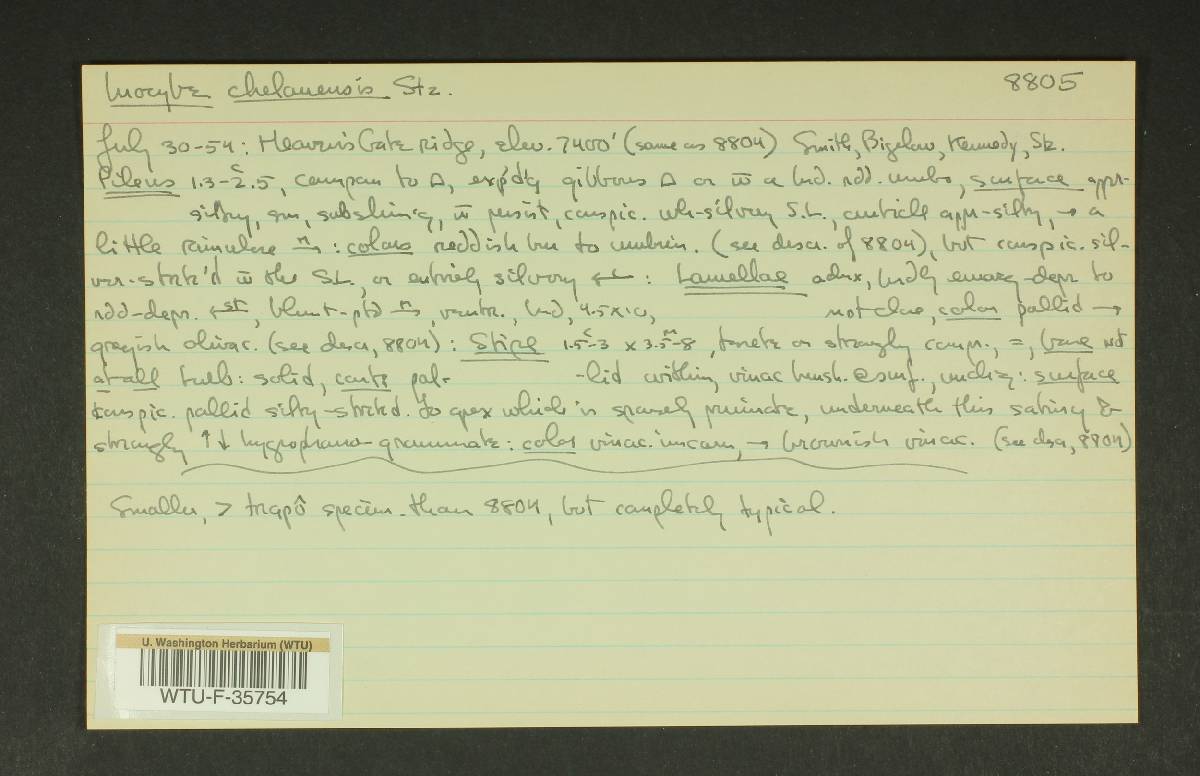 Inocybe chelanensis Stz. 8805
July 30-54: Heaven's Gate Ridge, elev. 7400' (same as 8804) Smith, Bigelow, Kennedy, Stz.
Pileus 1.3-2.5, campan to Δ, exp'd'g gibbous Δ or w̄ a brd. rdd. umbo, surface appr-
silky, sm, subshin'g, w̄ persist, conspic. wh-silvery S.L., cuticle appr-silky, → a
little rimulose m→: color reddish brn to umbrin. (see descr. of 8804), but conspic. sil-
ver-strk'd w̄ the SL, or entirely silvery ←: Lamellae adnx, brdly emarg-depr to
rdd-depr. ←st, blunt-ptd m→, ventr., brd, 4.5 x 10, not clse, color pallid →
grayish olivac. (see descr, 8804): Stipe 1.5-3 x 3.5-8, terete or strongly compr., =, base not
at all bulb: solid, contx pal- -lid within, vinac brnsh. @ surf., unchg: surface
conspic. pallid silky-strkd. to apex which is sparsely pruinate, underneath this satiny &
strongly ↑↓ hygrophano-grammate: color vinac. incarn, → brownish vinac. (see descr, 8804)
Smaller, > specim. than 8804, but completely typical.
U. Washington Herbarium (WTU)
WTU-F-35754